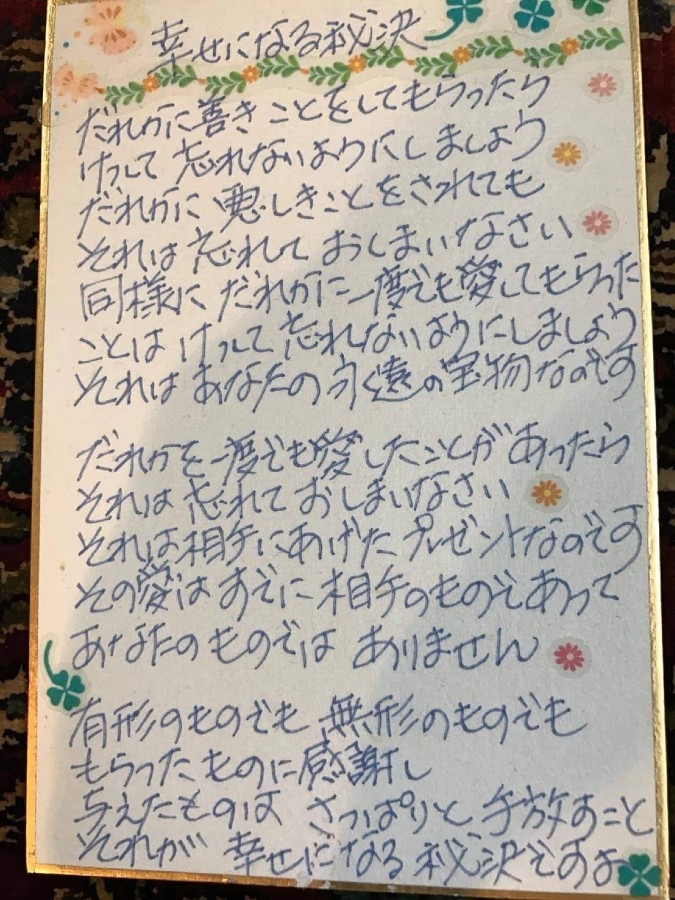 幸せになる秘決
だれかに善きことをしてもらったら
けっして忘れないようにしましょう
だれかに悪しきことをされても
それは忘れておしまいなさい
同様にだれかに一度でも愛してもらった
ことはけっして忘れないようにしましょう
それはあなたの永遠の宝物なのです
だれかを一度でも愛したことがあったら
それは忘れておしまいなさい
それは相手にあげたプレゼントなのです
その愛はすでに相手のものであって
あなたのものではありません
有形のものでも無形のものでも
もらったものに感謝し
与えたものはさっぱりと手放すこと
それが幸せになる秘決ですよ